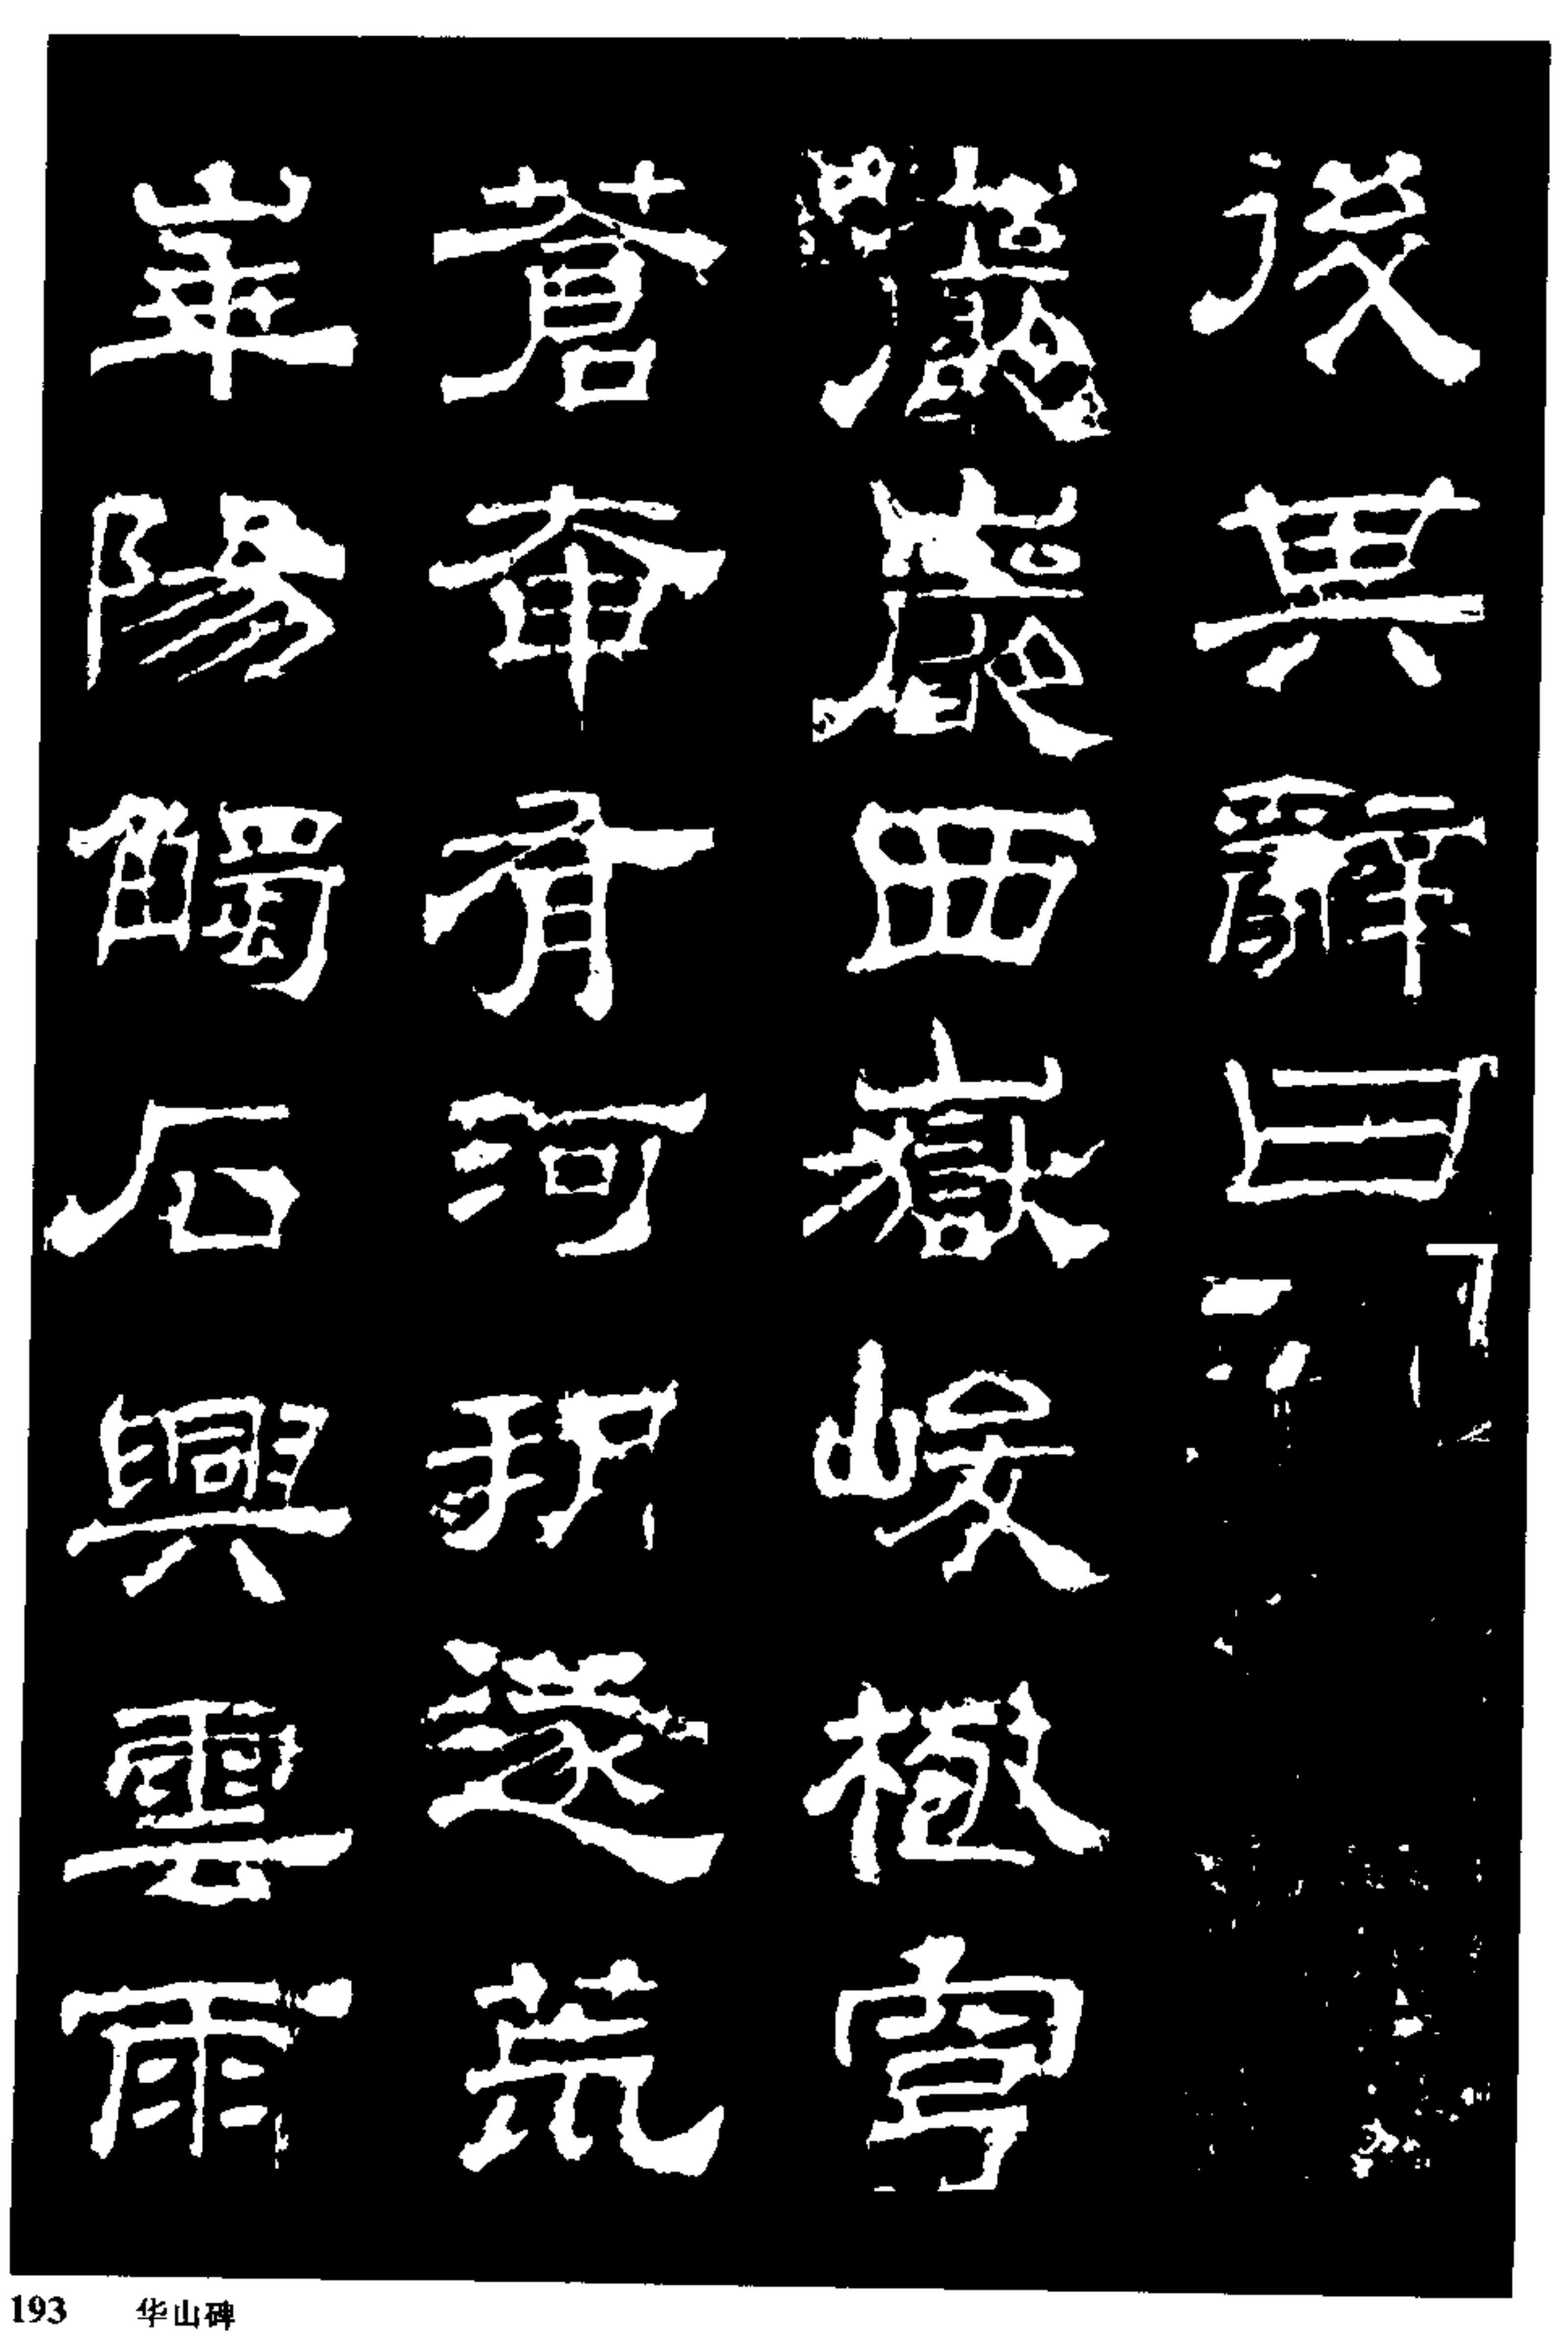 後其辭曰
巖巖西嶽峻極穹
蒼奄有河朔遂荒
華陽觸石興雲雨
193 华山碑